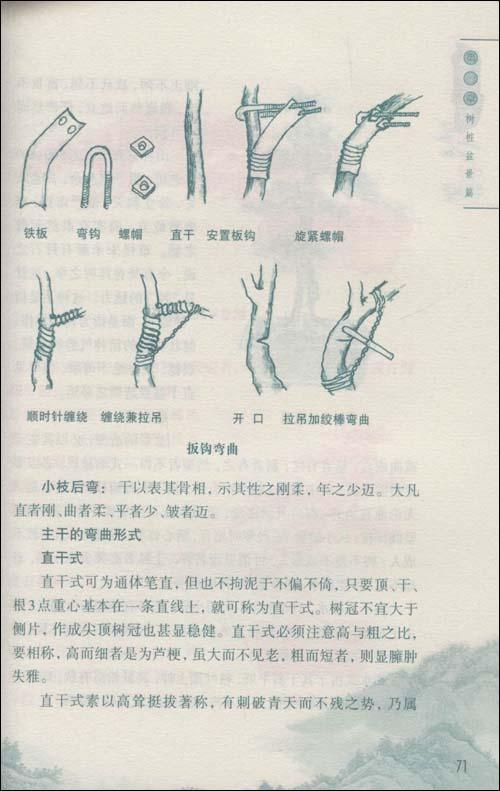 第二章
树桩盆景篇
铁板 弯钩 螺帽 直干 安置板钩 旋紧螺帽
顺时针缠绕 缠绕兼拉吊 开口 拉吊加绞棒弯曲
扳钩弯曲
小枝后弯：干以表其骨相，示其性之刚柔，年之少迈。大凡
直者刚、曲者柔、平者少、皱者迈。
主干的弯曲形式
直干式
直干式可为通体笔直，但也不拘泥于不偏不倚，只要顶、干、
根3点重心基本在一条直线上，就可称为直干式。树冠不宜大于
侧片，作成尖顶树冠也甚显稳健。直干式必须注意高与粗之比，
要相称，高而细者是为芦梗，虽大而不见老，粗而短者，则显臃肿
失雅。
直干式素以高耸挺拔著称，有刺破青天而不残之势，乃属
71